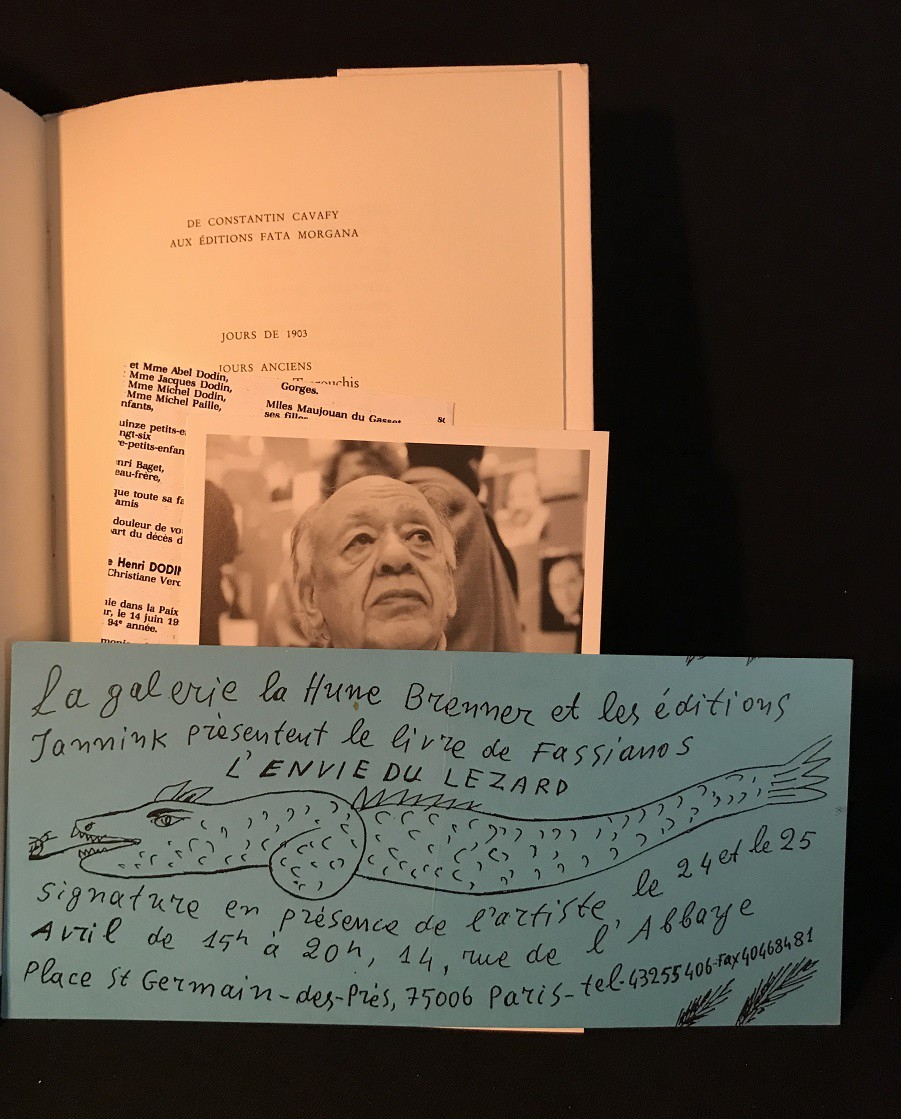 DE CONSTANTIN CAVAFY
AUX ÉDITIONS FATA MORGANA
JOURS DE 1903
JOURS ANCIENS
et Mme Abel Dodin,
Mme Jacques Dodin,
Mme Michel Dodin,
Mme Michel Paille,
nfants,
uinze petits-e
ngt-six
e-petits-enfan
nri Baget,
eau-frère,
que toute sa fa
amis
douleur de vo
art du décès d
e Henri DODIN
Christiane Verc
ie dans la Paix
r, le 14 juin 19
94e année.
Gorges.
Mlles Maujouan du Gasset
ses filles
La galerie la Hune Brenner et les éditions
Jannink présentent le livre de Fassianos
L'ENVIE DU LEZARD
signature en présence de l'artiste, le 24 et le 25
Avril de 15h à 20h, 14, rue de l'Abbaye
Place St Germain-des-Près, 75006 Paris-tel-43255406-Fax40468481